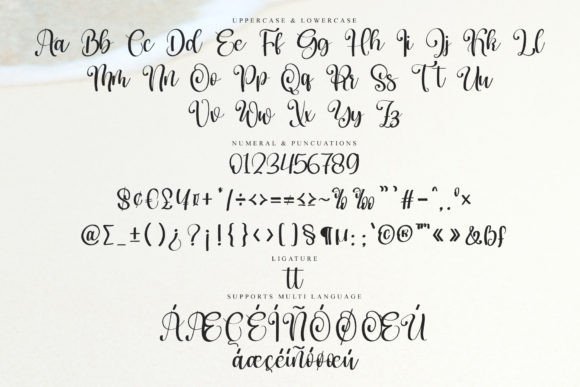 UPPERCASE & LOWERCASE
Aa Bb Cc Dd Ee Ff Gg Hh Ii Jj Kk Ll
Mm Nn Oo Pp Qq Rr Ss Tt Uu
Vv Ww Xx Yy Zz
NUMERAL & PUNCUATIONS
0123456789
$¢€£¥¤+*/÷<>=≠≤≥~%‰"'#-^,.ºx
@∑_±()¿?¡!{}‹›[]§¶µ:;'©®™"«»&ƃf
LIGATURE
tt
SUPPORTS MULTI LANGUAGE
ÁÆÇÉÍÑÓØŒÚ
áæçéíñóøœú